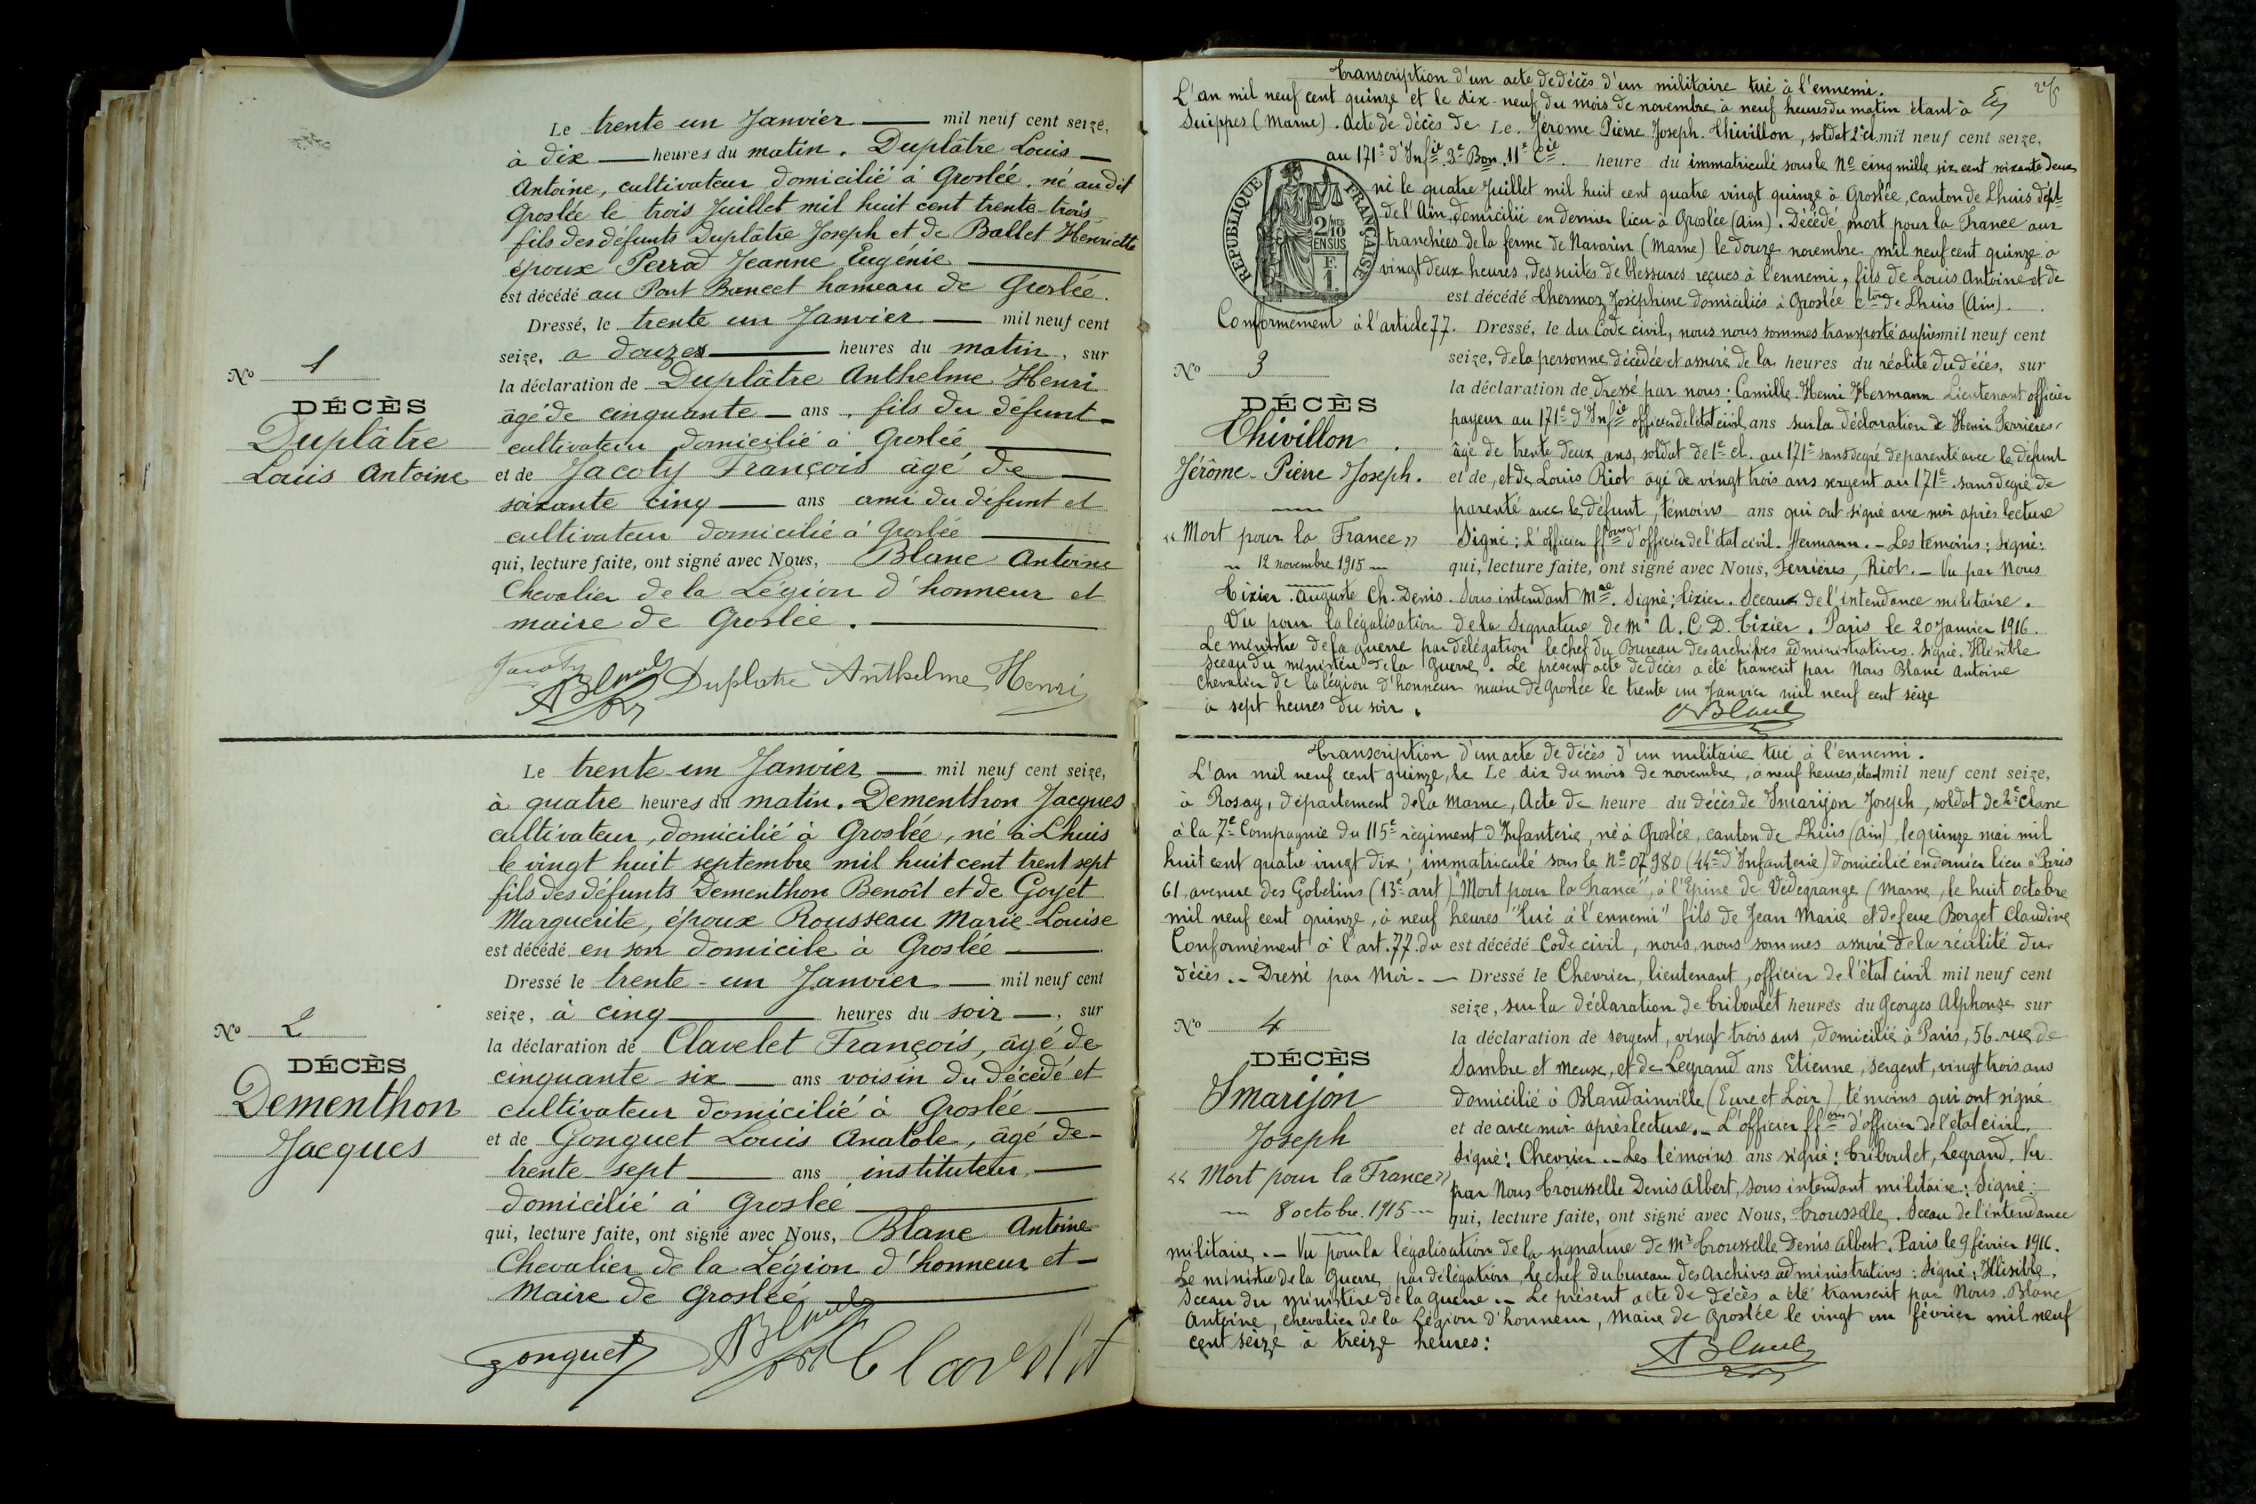 Le trente un Janvier — mil neuf cent seize,
à dix — heures du matin. Duplâtre Louis —
Antoine, cultivateur domicilié à Groslée. né au dit
Groslée le trois Juillet mil huit cent trente-trois
fils des défunts Duplâtre Joseph et de Ballet Henriette
époux Perrod Jeanne Eugénie —
est décédé au Port hameau de Groslée.
Dressé, le trente un Janvier — mil neuf cent
seize, a douze — heures du matin, sur
la déclaration de Duplâtre Anthelme Henri
âgé de cinquante — ans. fils du défunt —
cultivateur domicilié à Groslée —
et de Jacoty François âgé de —
soixante cinq — ans ami du défunt et
cultivateur domicilié à Groslée —
qui, lecture faite, ont signé avec Nous, Blanc Antoine
Chevalier de la Légion d'honneur et
maire de Groslée. —
Jacoty
ABlanc Duplatre Anthelme Henri
No 1
DÉCÈS
Duplâtre
Louis Antoine
Le trente-un Janvier — mil neuf cent seize,
à quatre heures du matin. Dementhon Jacques
cultivateur, domicilié à Groslée, né à Lhuis
le vingt huit septembre mil huit cent trent sept
fils des défunts Dementhon Benoît et de Goyet
Marguerite, époux Rousseau Marie-Louise
est décédé en son domicile à Groslée —
Dressé le trente-un Janvier — mil neuf cent
seize, à cinq — heures du soir —, sur
la déclaration de Clavelet François, âgé de
cinquante-six — ans voisin du décédé et
cultivateur domicilié à Groslée —
et de Gonguet Louis Anatole, âgé de —
trente-sept — ans instituteur —
domicilié à Groslée —
qui, lecture faite, ont signé avec Nous, Blanc Antoine
Chevalier de la Légion d'honneur et —
Maire de Groslée —
gonguet ABlanc Clavelet
No 2
DÉCÈS
Dementhon
Jacques
Transcription d'un acte de décès d'un militaire tué à l'ennemi.
L'an mil neuf cent quinze et le dix-neuf du mois de novembre à neuf heures du matin étant à
Suippes (Marne). Acte de décès de Le. Jérome Pierre Joseph. Thivillon, soldat 2e cl mil neuf cent seize,
au 171e d'Infie 3e Bon. 11e Cie. heure du immatriculé sous le No cinq mille six cent soixante deux
né le quatre Juillet mil huit cent quatre vingt quinze à Groslée, canton de Lhuis dépt
de l'Ain, domicilié en dernier lieu à Groslée (Ain). Décédé mort pour la France aux
tranchées de la ferme de Navarin (Marne) le douze novembre mil neuf cent quinze à
vingt deux heures, des suites de blessures reçues à l'ennemi, fils de Louis Antoine et de
est décédé Lhermoz Joséphine domiciliés à Groslée cton de Lhuis (Ain).
Conformément à l'article 77. Dressé, le du Code civil, nous nous sommes transporté auprès mil neuf cent
seize, de la personne décédée et assuré de la heures du réalité du décès, sur
la déclaration de Dressé par nous: Camille-Henri Hermann Lieutenant officier
payeur au 171e d'Infie officier de l'état civil ans sur la déclaration de Henri Ferrières,
âgé de trente deux ans, soldat de 1e cl. au 171e sans degré de parenté avec le défunt
et de, et de Louis Riot âgé de vingt trois ans sergent au 171e. sans degré de
parenté avec le défunt, témoins ans qui ont signé avec moi après lecture
Signé: L'officier ffons d'officier de l'état civil. Hermann. — Les témoins: Signé:
qui, lecture faite, ont signé avec Nous, Ferrières, Riot. — Vu par Nous
Tixier. Auguste Ch. Denis. Sous intendant Mre. Signé: Tixier. Sceau de l'intendance militaire.
Vu pour la légalisation de la Signature de Mr A. C. D. Tixier. Paris le 20 Janvier 1916.
Le ministre de la guerre par délégation le chef du Bureau des archives administratives. Signé. Illisible
Sceau du ministère de la Guerre. Le présent acte de décès a été transcrit par Nous Blanc Antoine
Chevalier de la légion d'honneur maire de Groslée le trente un Janvier mil neuf cent seize
a sept heures du soir.
ABlanc
RÉPUBLIQUE FRANÇAISE
2/10
EN SUS
No 3
DÉCÈS
Thivillon
Jérôme-Pierre Joseph.
« Mort pour la France »
— 12 novembre 1915 —
Transcription d'un acte de décès d'un militaire tué à l'ennemi.
L'an mil neuf cent quinze, le Le dix du mois de novembre, à neuf heures, étant mil neuf cent seize,
à Rosay, département de la Marne, Acte de heure du décès de Smarijon Joseph, soldat de 2e classe
à la 7e Compagnie du 115e régiment d'Infanterie, né à Groslée, canton de Lhuis (Ain), le quinze mai mil
huit cent quatre vingt dix; immatriculé sous le No 07980 (44e d'Infanterie) domicilié en dernier lieu à Paris
61, avenue des Gobelins (13e arrt) "Mort pour la France", à l'Epine de Védegrange (Marne, le huit octobre
mil neuf cent quinze, à neuf heures "tué à l'ennemi" fils de Jean Marie et de feue Borget Claudine
Conformément à l'art. 77. du est décédé Code civil, nous, nous sommes assuré de la réalité du
décès. — Dressé par Moi. — Dressé le Chevrier, lieutenant, officier de l'état civil mil neuf cent
seize, sur la déclaration de Triboulet heures du Georges Alphonse sur
la déclaration de sergent, vingt trois ans, domicilié à Paris, 56. rue de
Sambre et Meuse, et de Legrand ans Etienne, sergent, vingt trois ans
domicilié à Blandainville (Eure et Loir), témoins qui ont signé
et de avec moi après lecture. — L'officier ffons d'officier de l'état civil.
Signé: Chevrier. — Les témoins ans signé: Triboulet, Legrand. Vu
par Nous Trousselle Denis Albert, sous intendant militaire: Signé:
qui, lecture faite, ont signé avec Nous, Trousselle. Sceau de l'intendance
militaire. — Vu pour la légalisation de la signature de Mr Trousselle Denis Albert. Paris le 9 février 1916.
Le ministre de la Guerre, par délégation, le chef du bureau des Archives administratives: Signé: Illisible.
Sceau du Ministère de la guerre. — Le présent acte de décès a été transcrit par Nous. Blanc
Antoine, chevalier de la Légion d'honneur, Maire de Groslée le vingt un février mil neuf
cent seize à treize heures:
ABlanc
No 4
DÉCÈS
Smarijon
Joseph
« Mort pour la France »
— 8 octobre. 1915 —